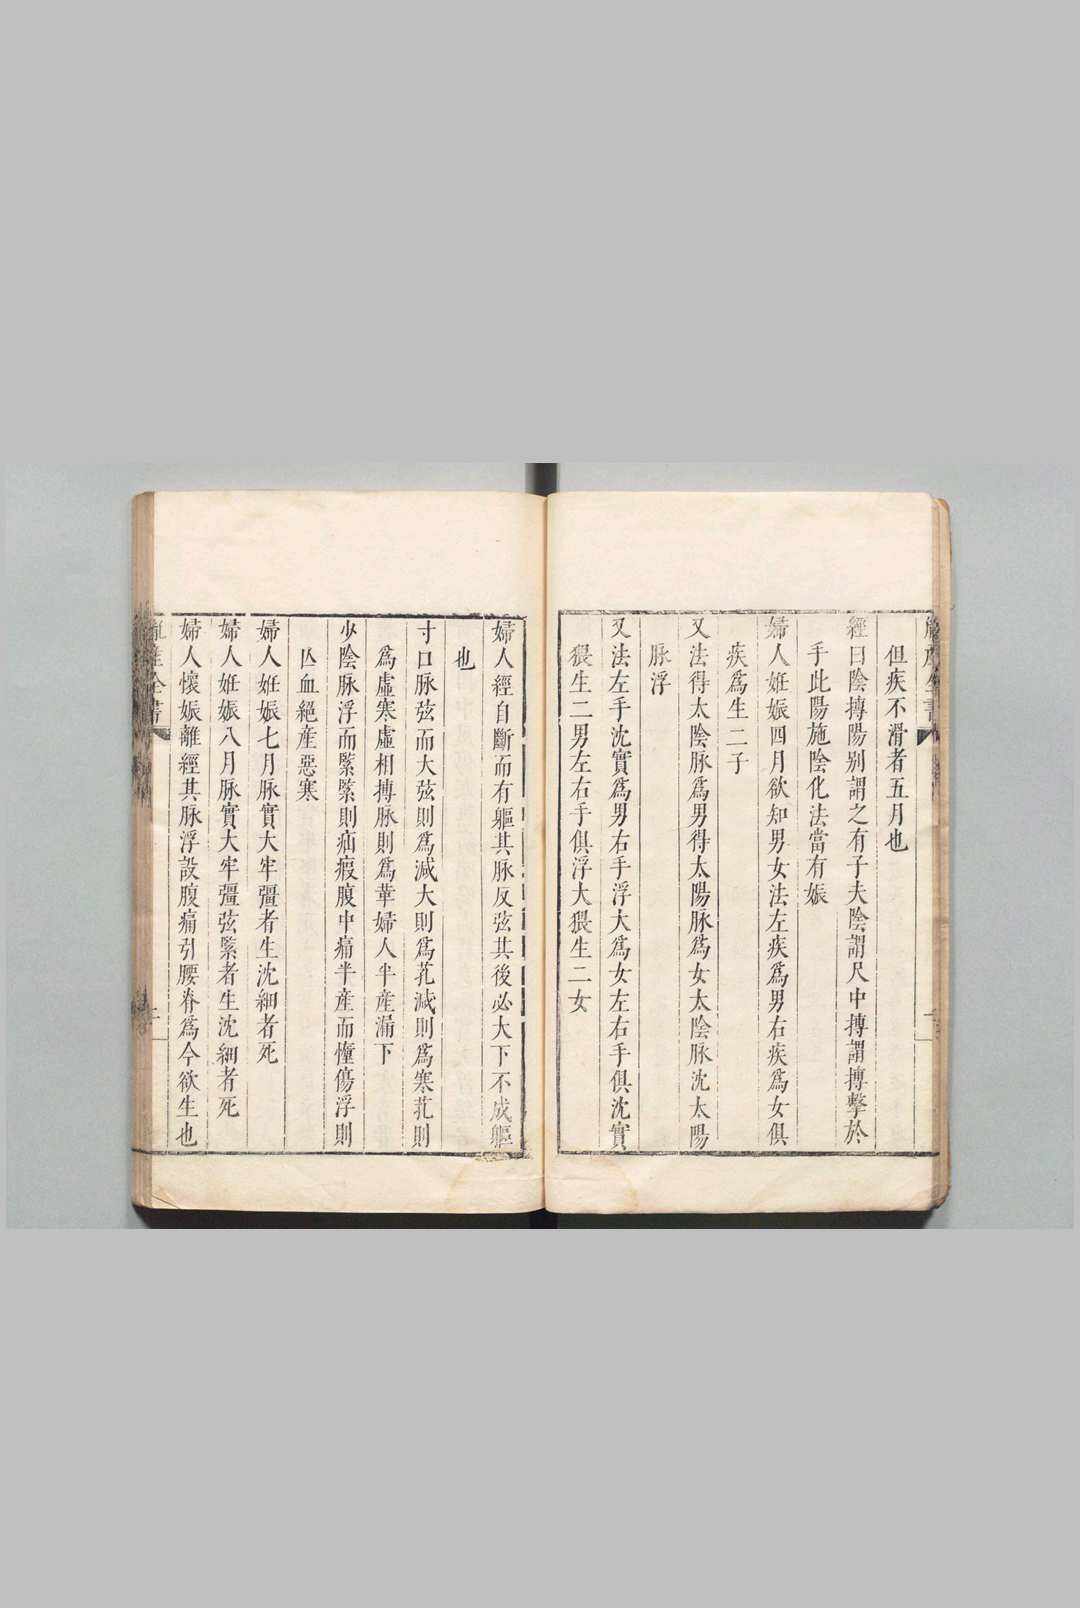 但疾不滑者五月也
經曰陰搏陽别謂之有子夫陰謂尺中搏謂搏擊於
手此陽施陰化法當有娠
婦人妊娠四月欲知男女法左疾爲男右疾爲女俱
疾爲生二子
又法得太陰脉爲男得太陽脉爲女太陰脉沈太陽
脉浮
又法左手沈實爲男右手浮大爲女左右手俱沈實
猥生二男左右手俱浮大猥生二女
婦人經自斷而有軀其脉反弦其後必大下不成軀
也
寸口脉弦而大弦則爲減大則爲芤減則爲寒芤則
爲虛寒虛相搏脉則爲革婦人半産漏下
少陰脉浮而緊緊則疝瘕腹中痛半産而憧傷浮則
亾血絕産惡寒
婦人妊娠七月脉實大牢彊者生沈細者死
婦人妊娠八月脉實大牢彊弦緊者生沈細者死
婦人懷娠離經其脉浮設腹痛引腰脊爲今欲生也
胤産全書
二